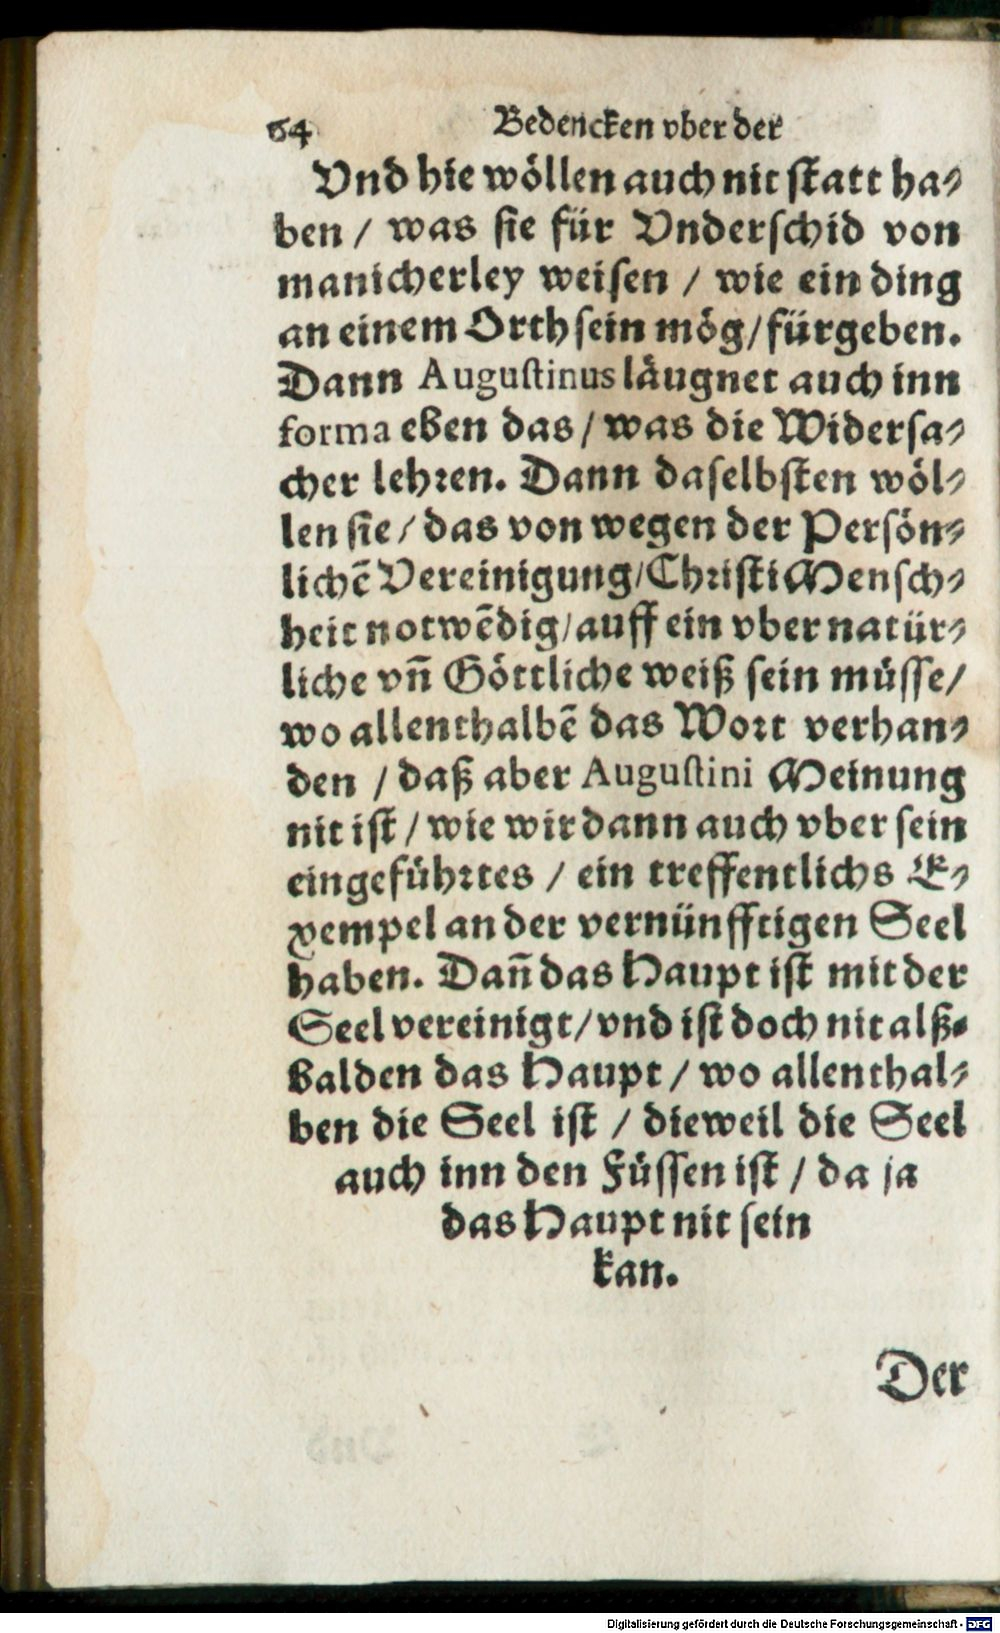 64 Bedencken vber der
Vnd hie wöllen auch nit statt ha-
ben / was sie für Vnderschid von
manicherley weisen / wie ein ding
an einem Orth sein mög / fürgeben.
Dann Augustinus läugnet auch inn
forma eben das / was die Widersa-
cher lehren. Dann daselbsten wöl-
len sie / das von wegen der Persön-
lichē Vereinigung / Christi Mensch-
heit notwēdig / auff ein vbernatür-
liche vñ Göttliche weiß sein müsse /
wo allenthalbē das Wort verhan-
den / daß aber Augustini Meinung
nit ist / wie wir dann auch vber sein
eingeführtes / ein treffentlichs E-
xempel an der vernünfftigen Seel
haben. Dañ das Haupt ist mit der
Seel vereinigt / vnd ist doch nit alß-
balden das Haupt / wo allenthal-
ben die Seel ist / dieweil die Seel
auch inn den Füssen ist / da ja
das Haupt nit sein
kan.
Der
Digitalisierung gefördert durch die Deutsche Forschungsgemeinschaft - DFG